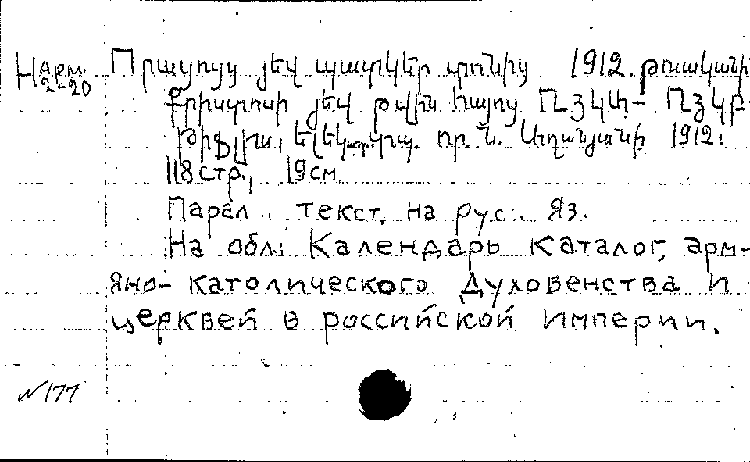 Нарм. 2-20 Պրակոյս յեվ պատկեր տոնից 1912. թուականի
Քրիստոսի յեվ թվին հայոց ՌՅԿԱ- ՌՅԿԲ
թիֆլիս, Էլեկտրատպ. որ. Ն. Աղանյանի 1912:
118 стр., 19 см
Парал. текст, на рус. яз.
На обл: Календарь каталог, арм-
яно-католического Духовенства и
церквей в российской империи.
№177